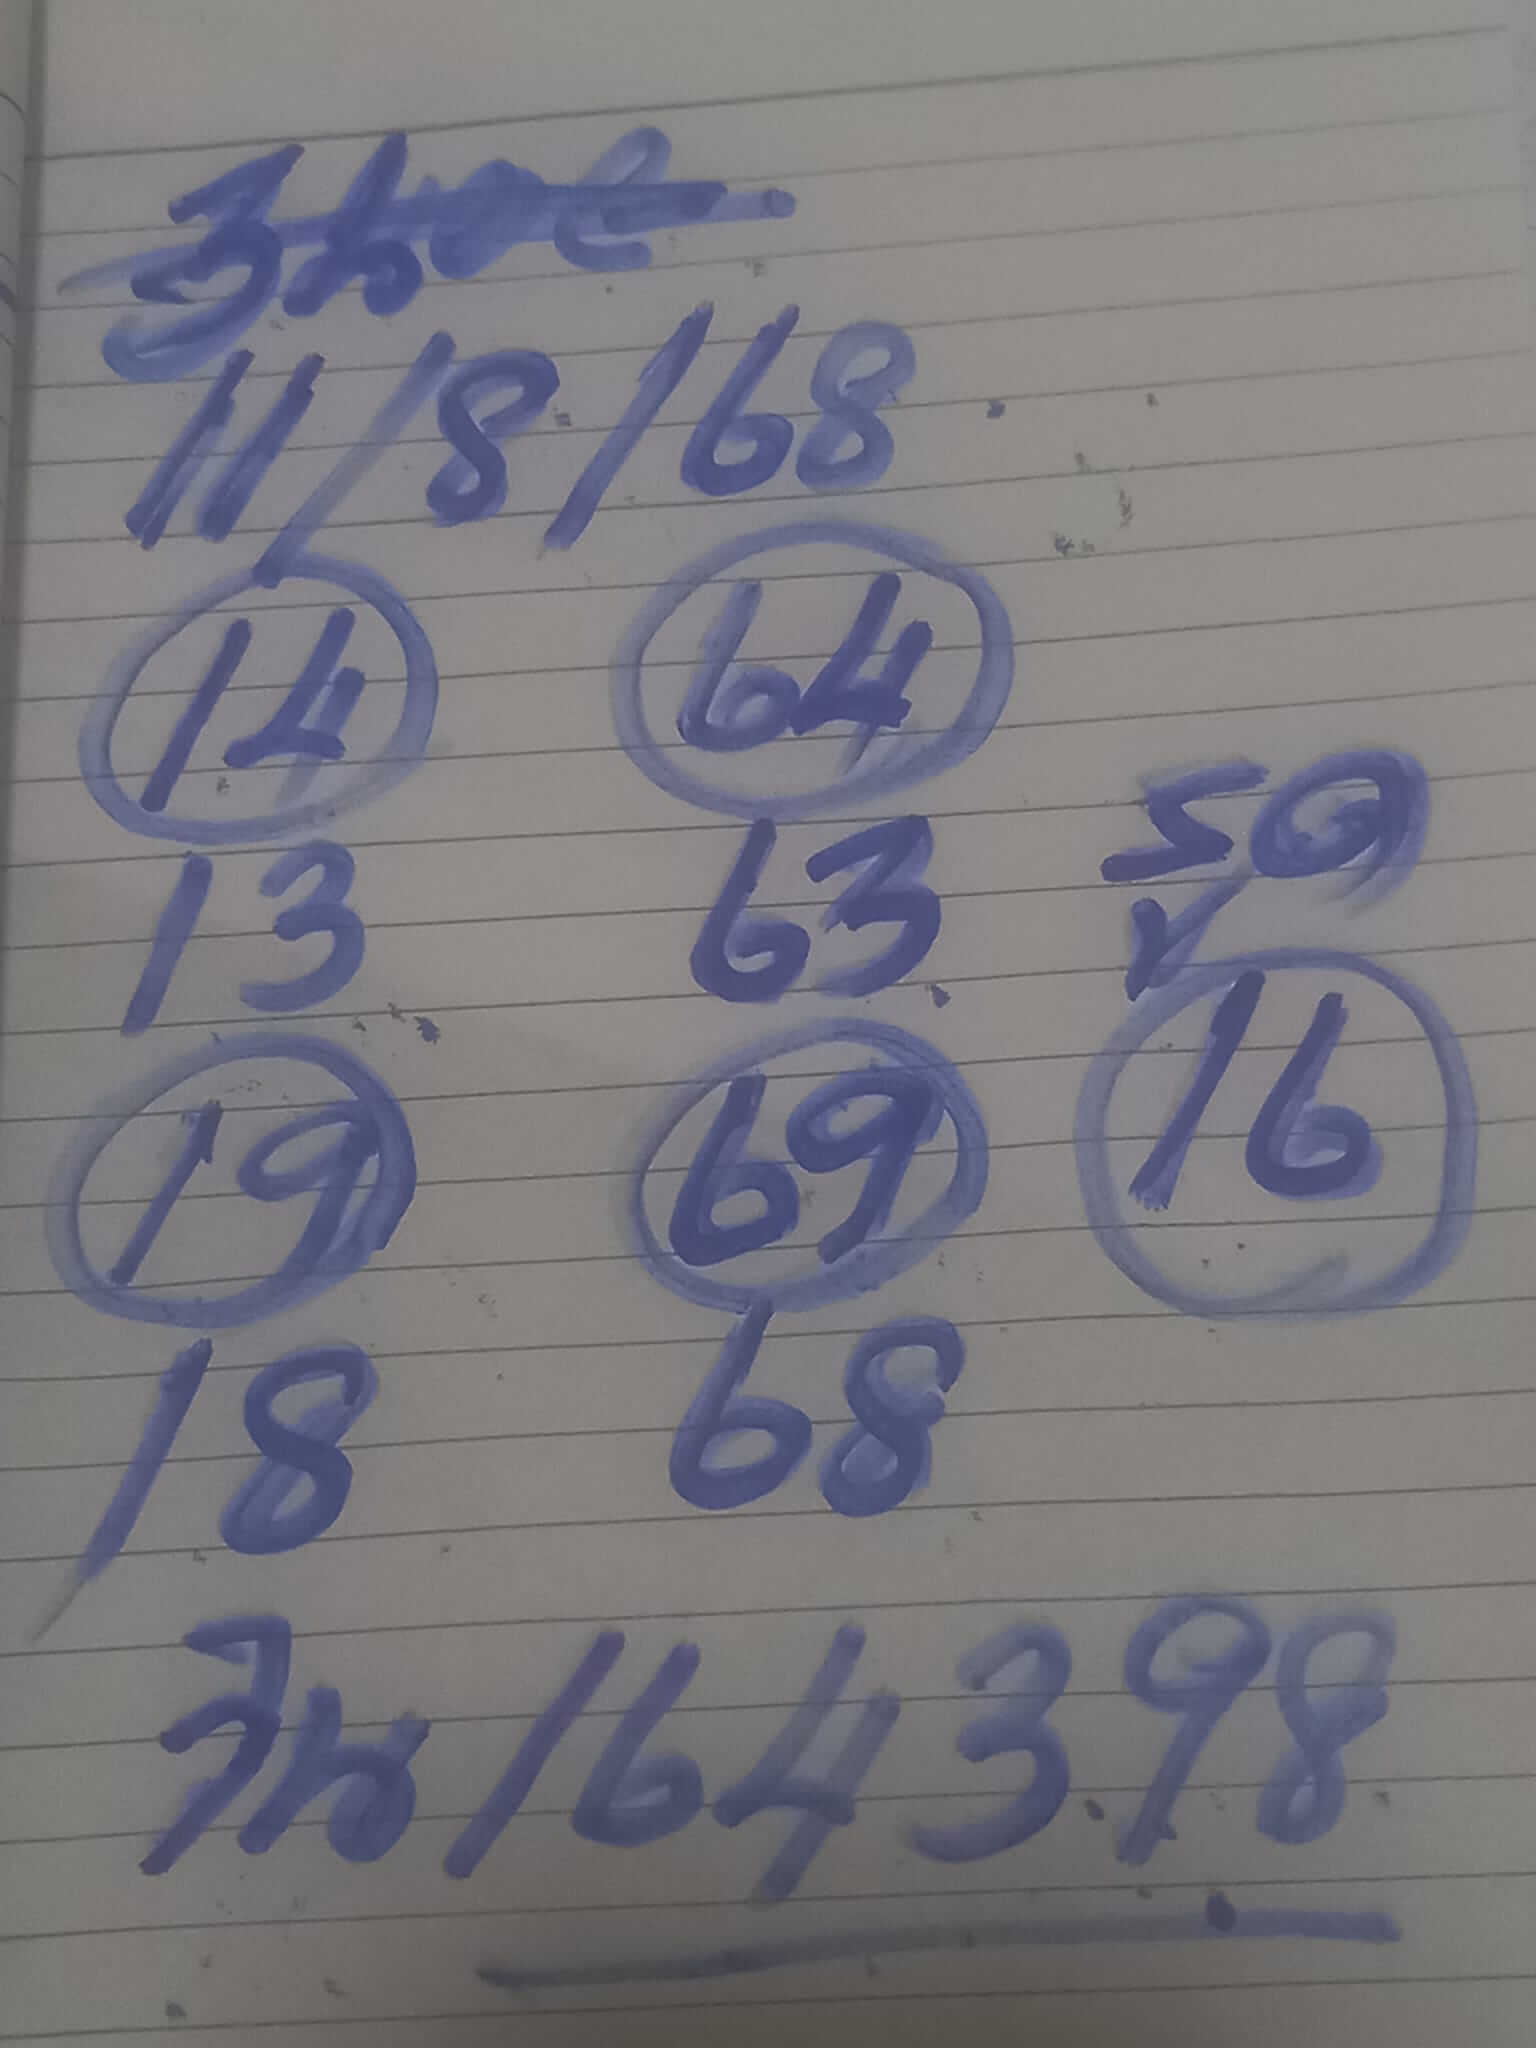 11/8/68
14 64
13 63
รูด
19 69 16
18 68
วิน 164398